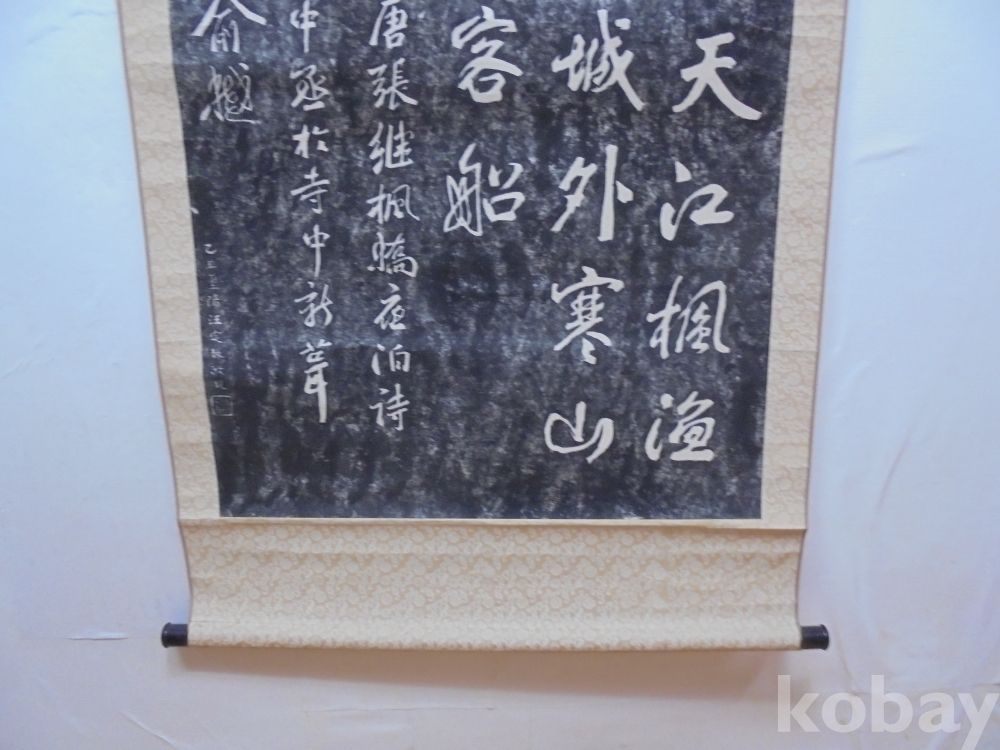 天江楓漁
城外寒山
客船
唐張继楓橋夜泊詩
中丞於寺中新葺
俞樾
kobay